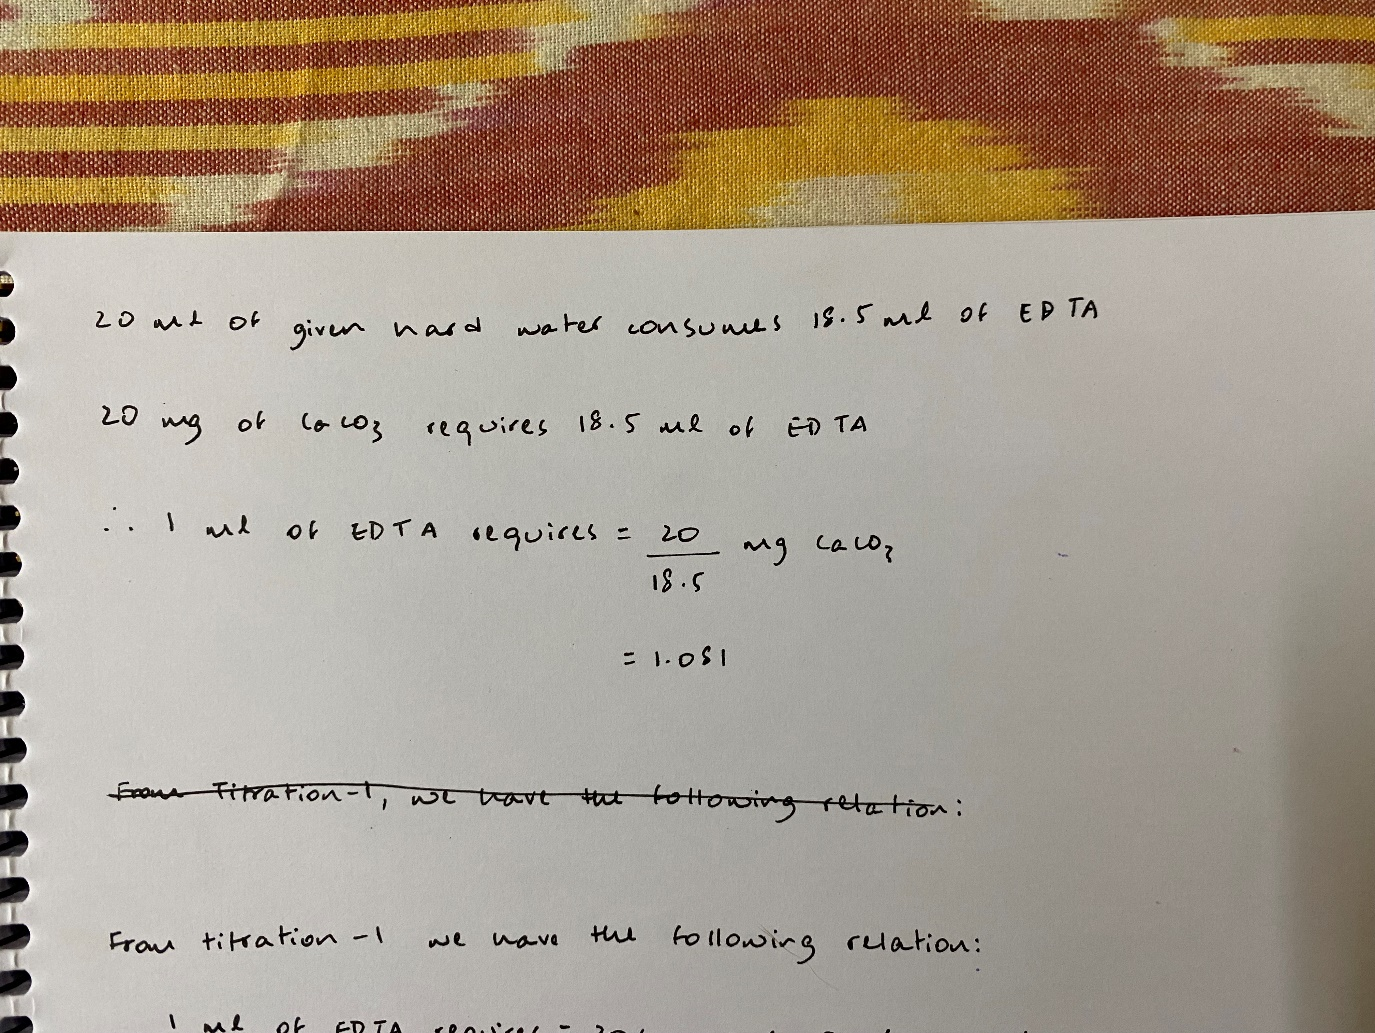 20 ml of given hard water consumes 18.5 ml of EDTA
20 mg of CaCO3 requires 18.5 ml of EDTA
∴ 1 ml of EDTA requires = 20 / 18.5 mg CaCO3
= 1.081
From Titration-1, we have the following relation:
From titration-1 we have the following relation:
1 ml of EDTA requires =